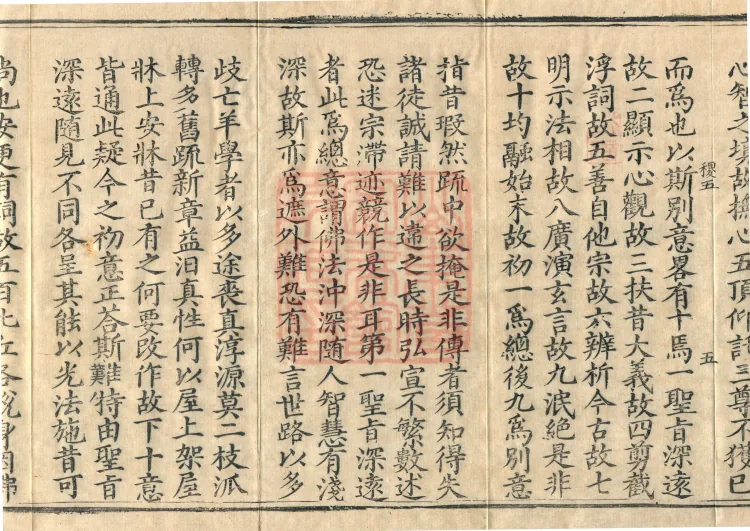 心智之境故撫心五頂仰託三尊不獲已
而爲也以斯別意畧有十焉一聖旨深遠
故二顯示心觀故三扶昔大義故四剪截
浮詞故五善自他宗故六辨析今古故七
明示法相故八廣演玄言故九泯絕是非
故十均融始末故初一爲總後九爲別意
稷五
五
指昔瑕然疏中欲掩是非傳者須知得失
諸徒誠請難以違之長時弘宣不繁數述
恐迷宗滯迹競作是非耳第一聖旨深遠
者此爲總意謂佛法沖深隨人智慧有淺
深故斯亦爲遮外難恐有難言世路以多
歧亡羊學者以多途喪真淳源莫二枝派
轉多舊疏新章益汩真性何以屋上架屋
牀上安牀昔已有之何要改作故下十意
皆通此疑今之初意正荅斯難特由聖旨
深遠隨見不同各呈其能以光法施昔可
尚也安更有詞故五百比丘各說身因佛